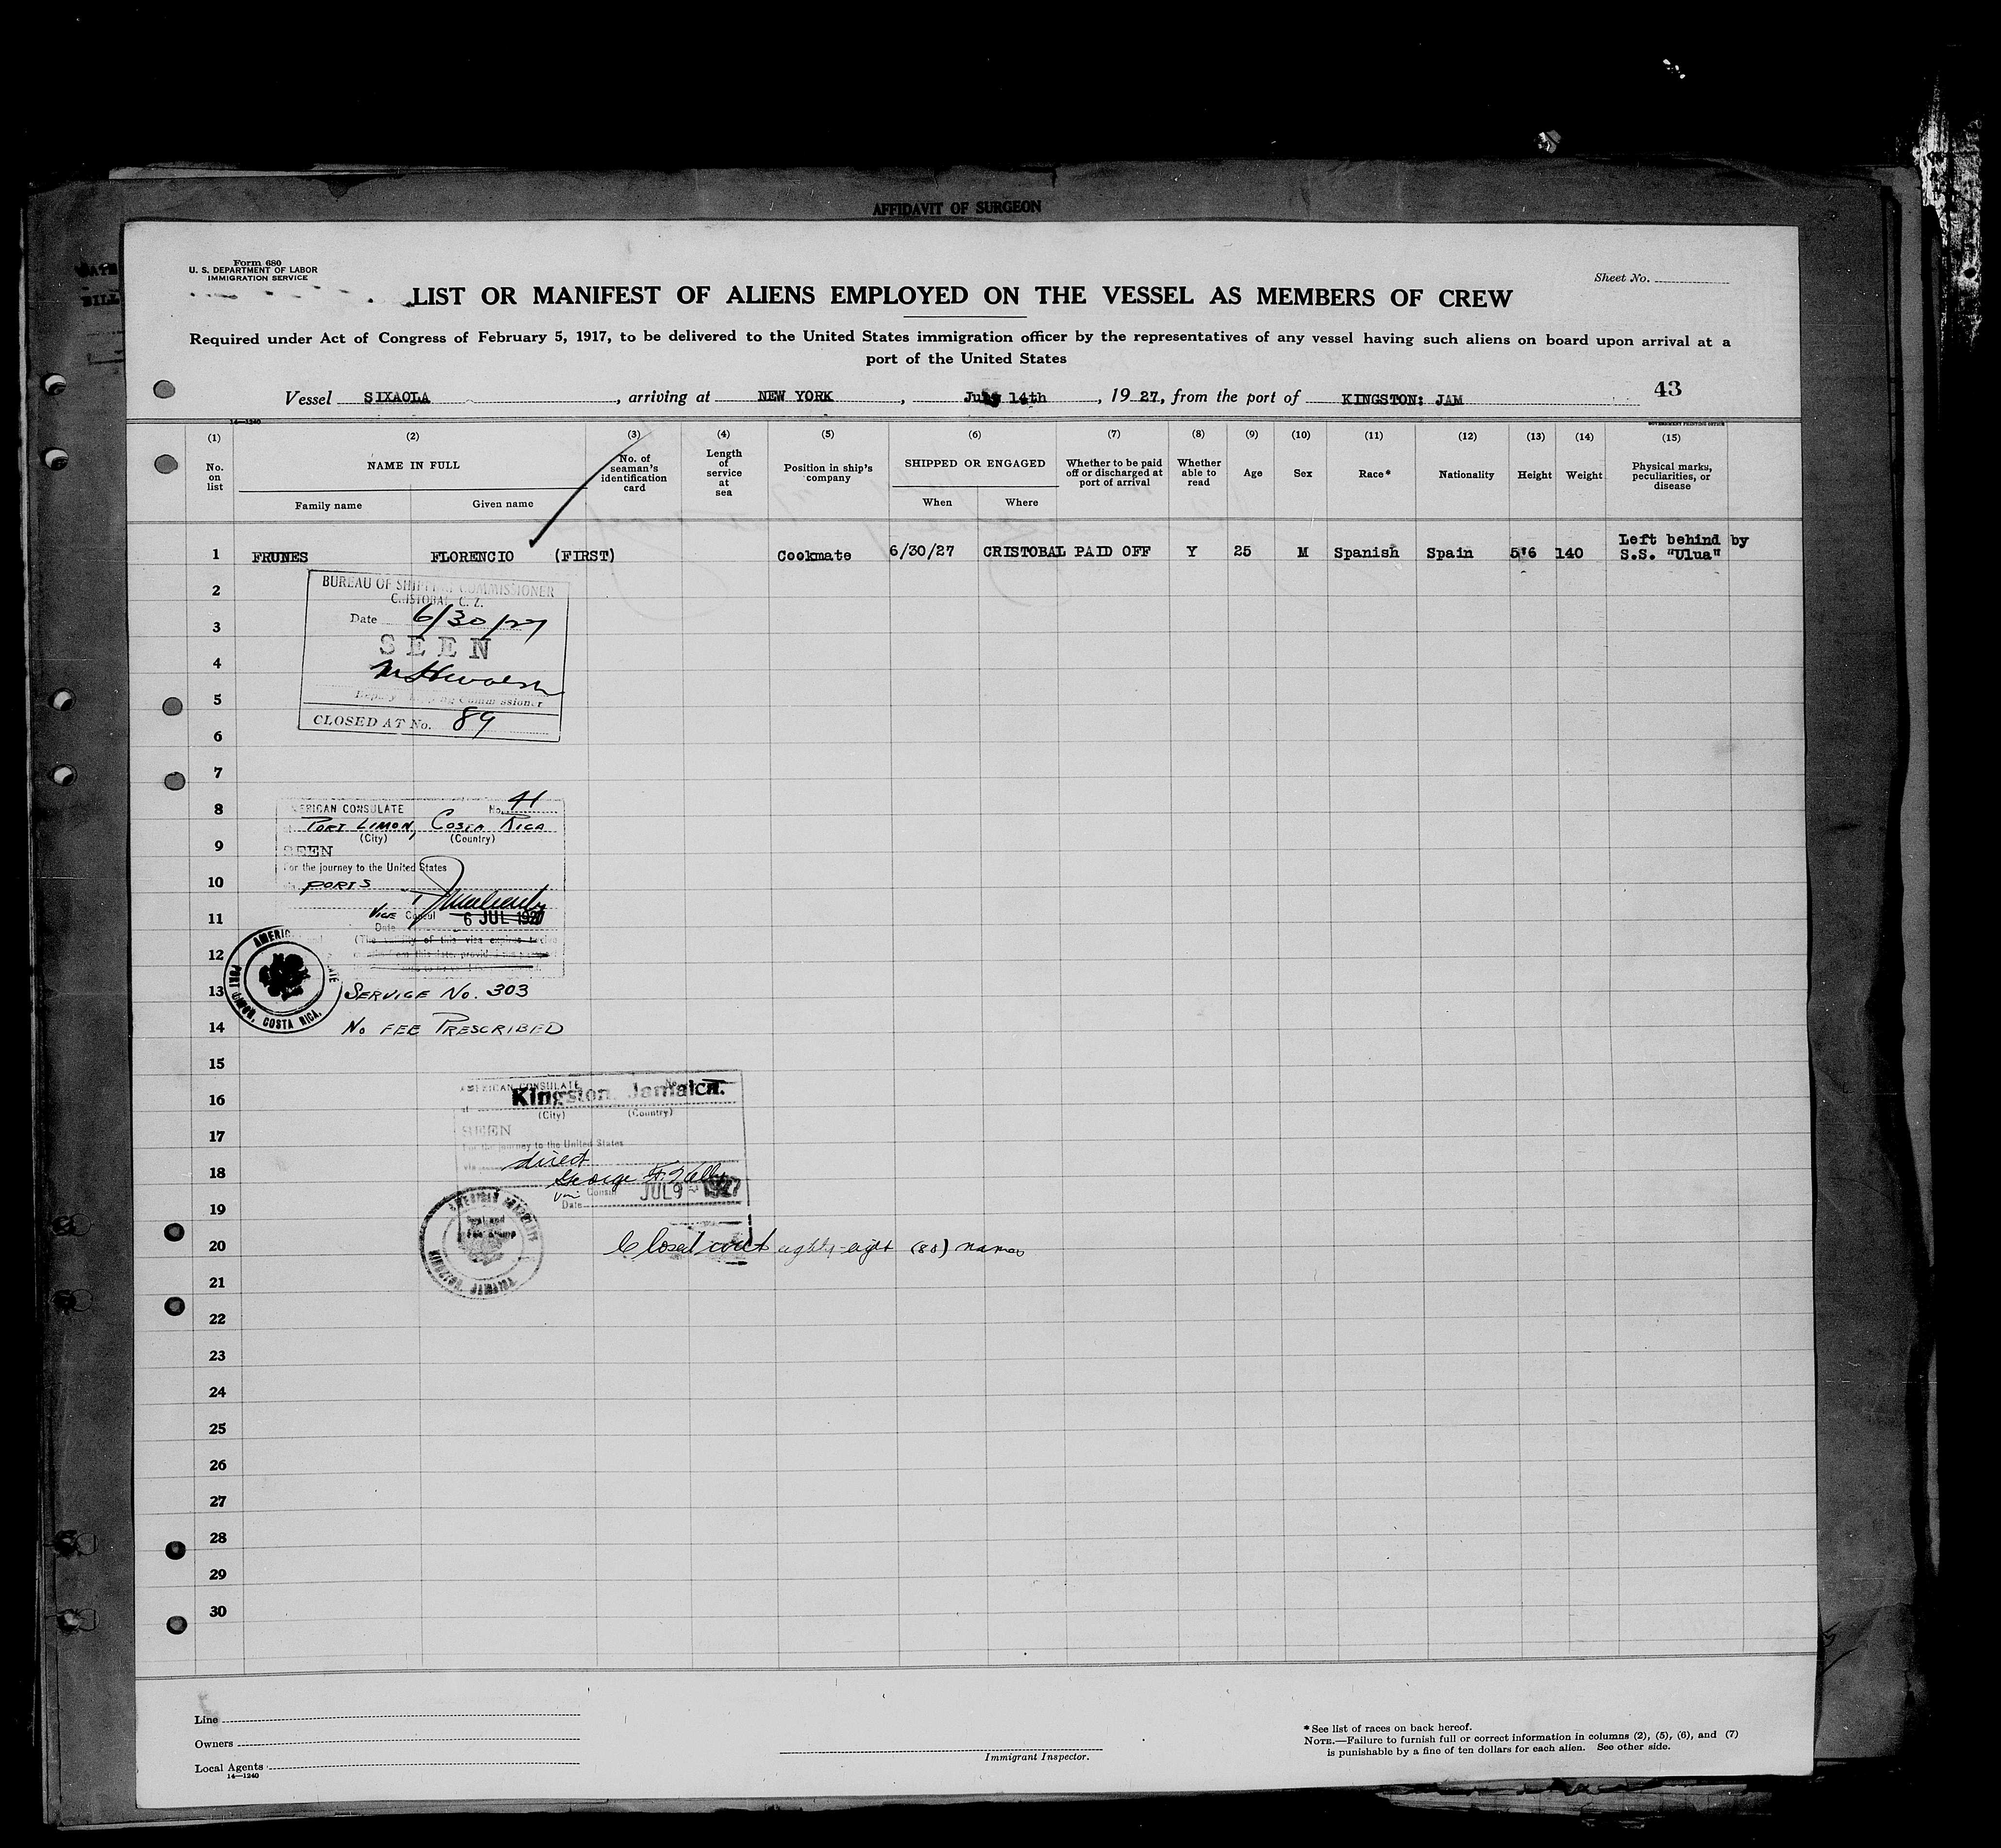 AFFIDAVIT OF SURGEON
Form 680
U. S. DEPARTMENT OF LABOR
IMMIGRATION SERVICE
Sheet No.
LIST OR MANIFEST OF ALIENS EMPLOYED ON THE VESSEL AS MEMBERS OF CREW
Required under Act of Congress of February 5, 1917, to be delivered to the United States immigration officer by the representatives of any vessel having such aliens on board upon arrival at a
port of the United States
43
Vessel SIXAOLA, arriving at NEW YORK, July 14th, 1927, from the port of KINGSTON: JAM
14—1240
GOVERNMENT PRINTING OFFICE
(1) (2) (3) (4) (5) (6) (7) (8) (9) (10) (11) (12) (13) (14) (15)
No. on list
NAME IN FULL
Family name
Given name
No. of seaman's identification card
Length of service at sea
Position in ship's company
SHIPPED OR ENGAGED
When
Where
Whether to be paid off or discharged at port of arrival
Whether able to read
Age
Sex
Race*
Nationality
Height
Weight
Physical marks, peculiarities, or disease
1 FRUNES FLORENCIO (FIRST) Cookmate 6/30/27 CRISTOBAL PAID OFF Y 25 M Spanish Spain 5'6 140 Left behind by
S.S. "Ulua"
2
BUREAU OF SHIPPING COMMISSIONER
CRISTOBAL, C. Z.
3
Date 6/30/27
SEEN
4
5
Deputy Shipping Commissioner
CLOSED AT No. 89
6
7
8
AMERICAN CONSULATE No. 41
PORT LIMON, COSTA RICA
(City) (Country)
9
SEEN
For the journey to the United States
10
PORTS
11
VICE Consul 6 JUL 1927
Date
12
(The validity of this visa expires twelve
AMERICAN CONSULATE
PORT LIMON, COSTA RICA.
13
SERVICE No. 303
14
No FEE PRESCRIBED
15
16
AMERICAN CONSULATE No.
at Kingston, Jamaica.
(City) (Country)
17
SEEN
For the journey to the United States
via direct
18
George
Consul JUL 9 1927
Date
19
KINGSTON JAMAICA
20
Closed with eighty-eight (88) names
21
22
23
24
25
26
27
28
29
30
Line
Owners
Local Agents
14—1240
Immigrant Inspector.
*See list of races on back hereof.
NOTE.—Failure to furnish full or correct information in columns (2), (5), (6), and (7)
is punishable by a fine of ten dollars for each alien. See other side.